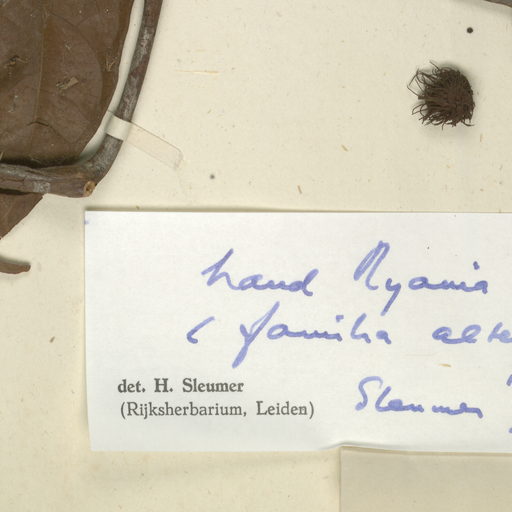 haud Ryania
( familia alte
det. H. Sleumer
(Rijksherbarium, Leiden)
Sleumer